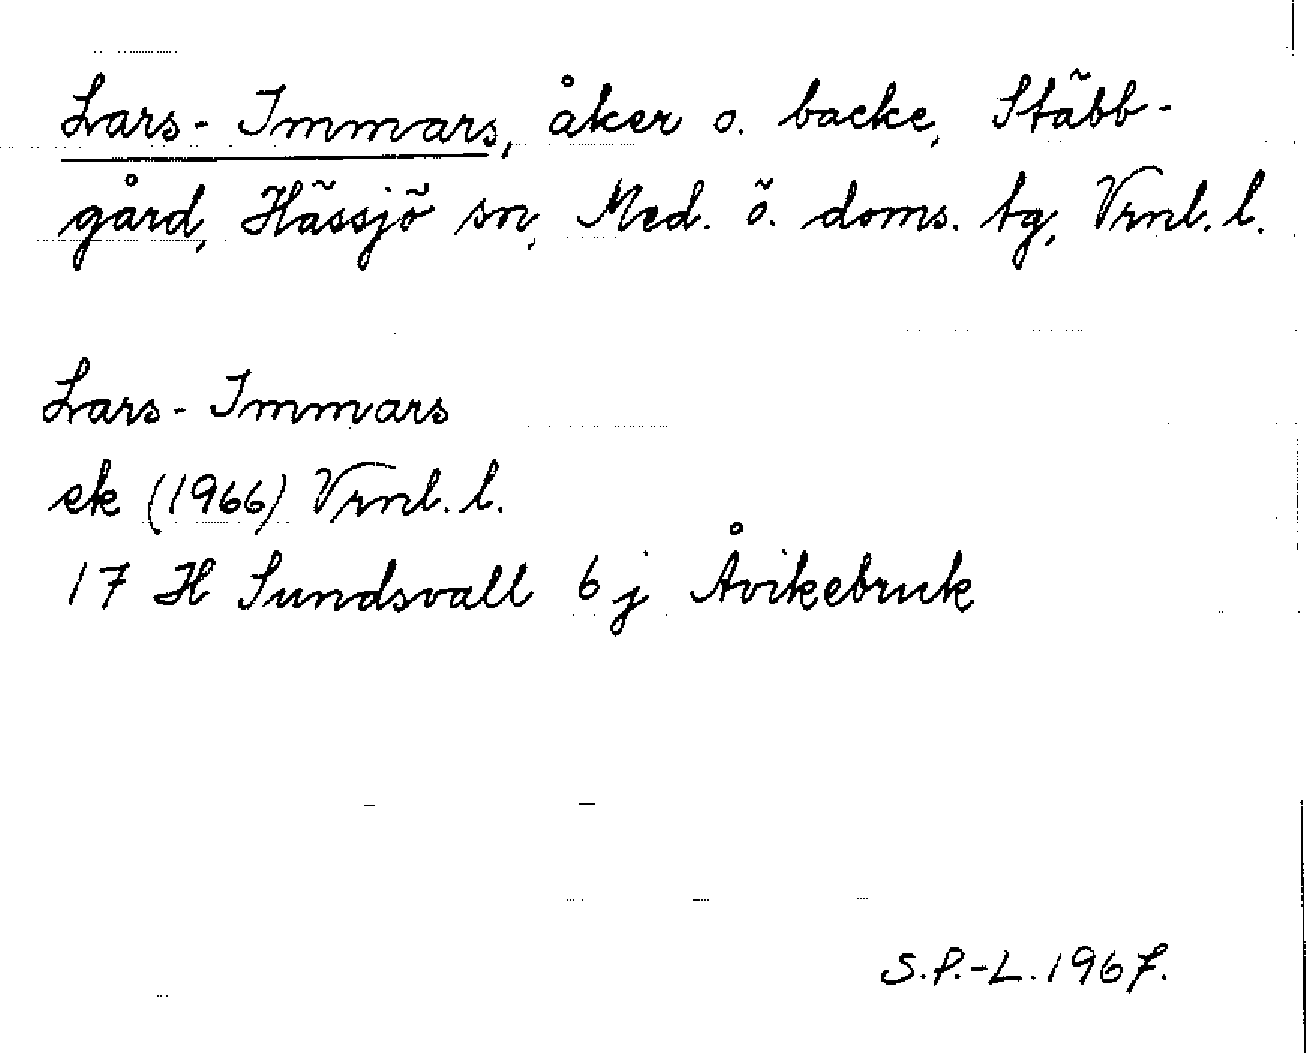 Lars-Immars, åker o. backe, Stäbb-
gård, Hässjö sn, Med. ö. doms. tg, Vrnl. l.
Lars-Immars
ek (1966) Vrnl. l.
17 H Sundsvall 6 j Åvikebruk
S.P.-L. 1967.